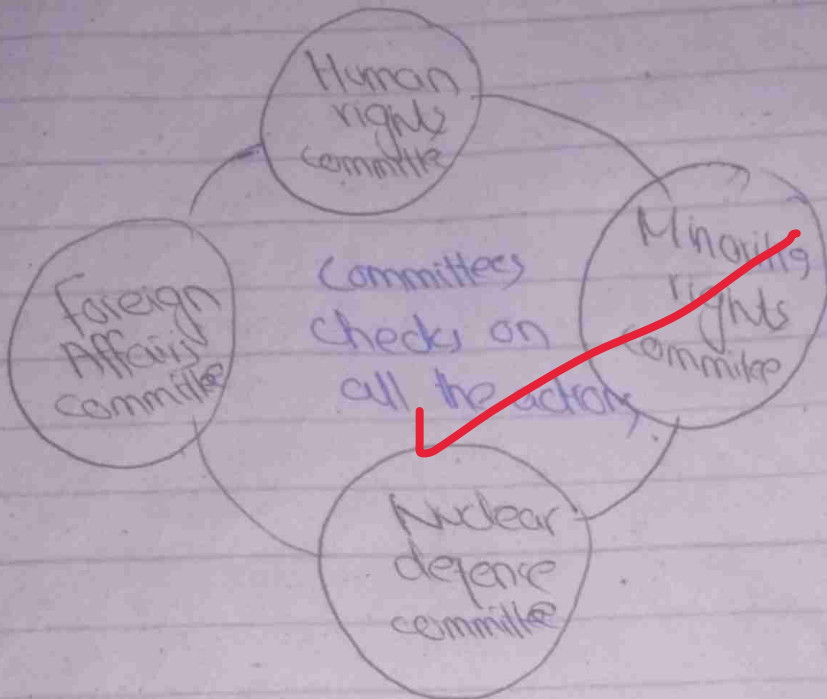 Human
rights
committe
Minority
rights
commitee
Foreign
Affairs
committee
Committees
checks on
all the actions
Nuclear
defence
committee